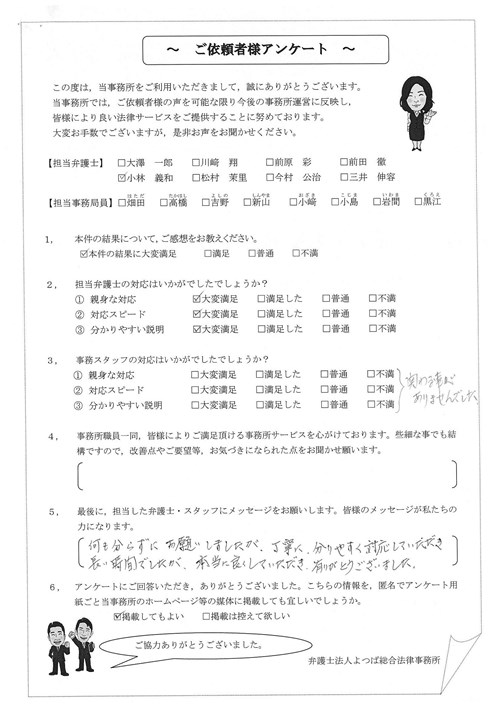 ～ ご依頼者様アンケート ～
この度は，当事務所をご利用いただきまして，誠にありがとうございます。
当事務所では，ご依頼者様の声を可能な限り今後の事務所運営に反映し，
皆様により良い法律サービスをご提供することに努めております。
大変お手数でございますが，是非お声をお聞かせください。
【担当弁護士】 □大澤 一郎 □川崎 翔 □前原 彩 □前田 徹
☑小林 義和 □松村 茉里 □今村 公治 □三井 伸容
【担当事務局員】 □畑田 □高橋 □吉野 □新山 □小﨑 □小島 □岩間 □黒江
1， 本件の結果について，ご感想をお教えください。
☑本件の結果に大変満足 □満足 □普通 □不満
2， 担当弁護士の対応はいかがでしたでしょうか？
① 親身な対応 ☑大変満足 □満足した □普通 □不満
② 対応スピード ☑大変満足 □満足した □普通 □不満
③ 分かりやすい説明 ☑大変満足 □満足した □普通 □不満
3， 事務スタッフの対応はいかがでしたでしょうか？
① 親身な対応 □大変満足 □満足した □普通 □不満
② 対応スピード □大変満足 □満足した □普通 □不満
③ 分かりやすい説明 □大変満足 □満足した □普通 □不満
ありませんでした
4， 事務所職員一同，皆様によりご満足頂ける事務所サービスを心がけております。些細な事でも結
構ですので，改善点やご要望等，お気づきになられた点をお聞かせ願います。
5， 最後に，担当した弁護士・スタッフにメッセージをお願いします。皆様のメッセージが私たちの
力になります。
何も分らずに お願いしましたが、丁寧に、分りやすく対応していただき
長い時間でしたが、本当に良くしていただき、有がとうございました。
6， アンケートにご回答いただき，ありがとうございました。こちらの情報を，匿名でアンケート用
紙ごと当事務所のホームページ等の媒体に掲載しても宜しいでしょうか。
☑掲載してもよい □掲載は控えて欲しい
ご協力ありがとうございました。
弁護士法人よつば総合法律事務所